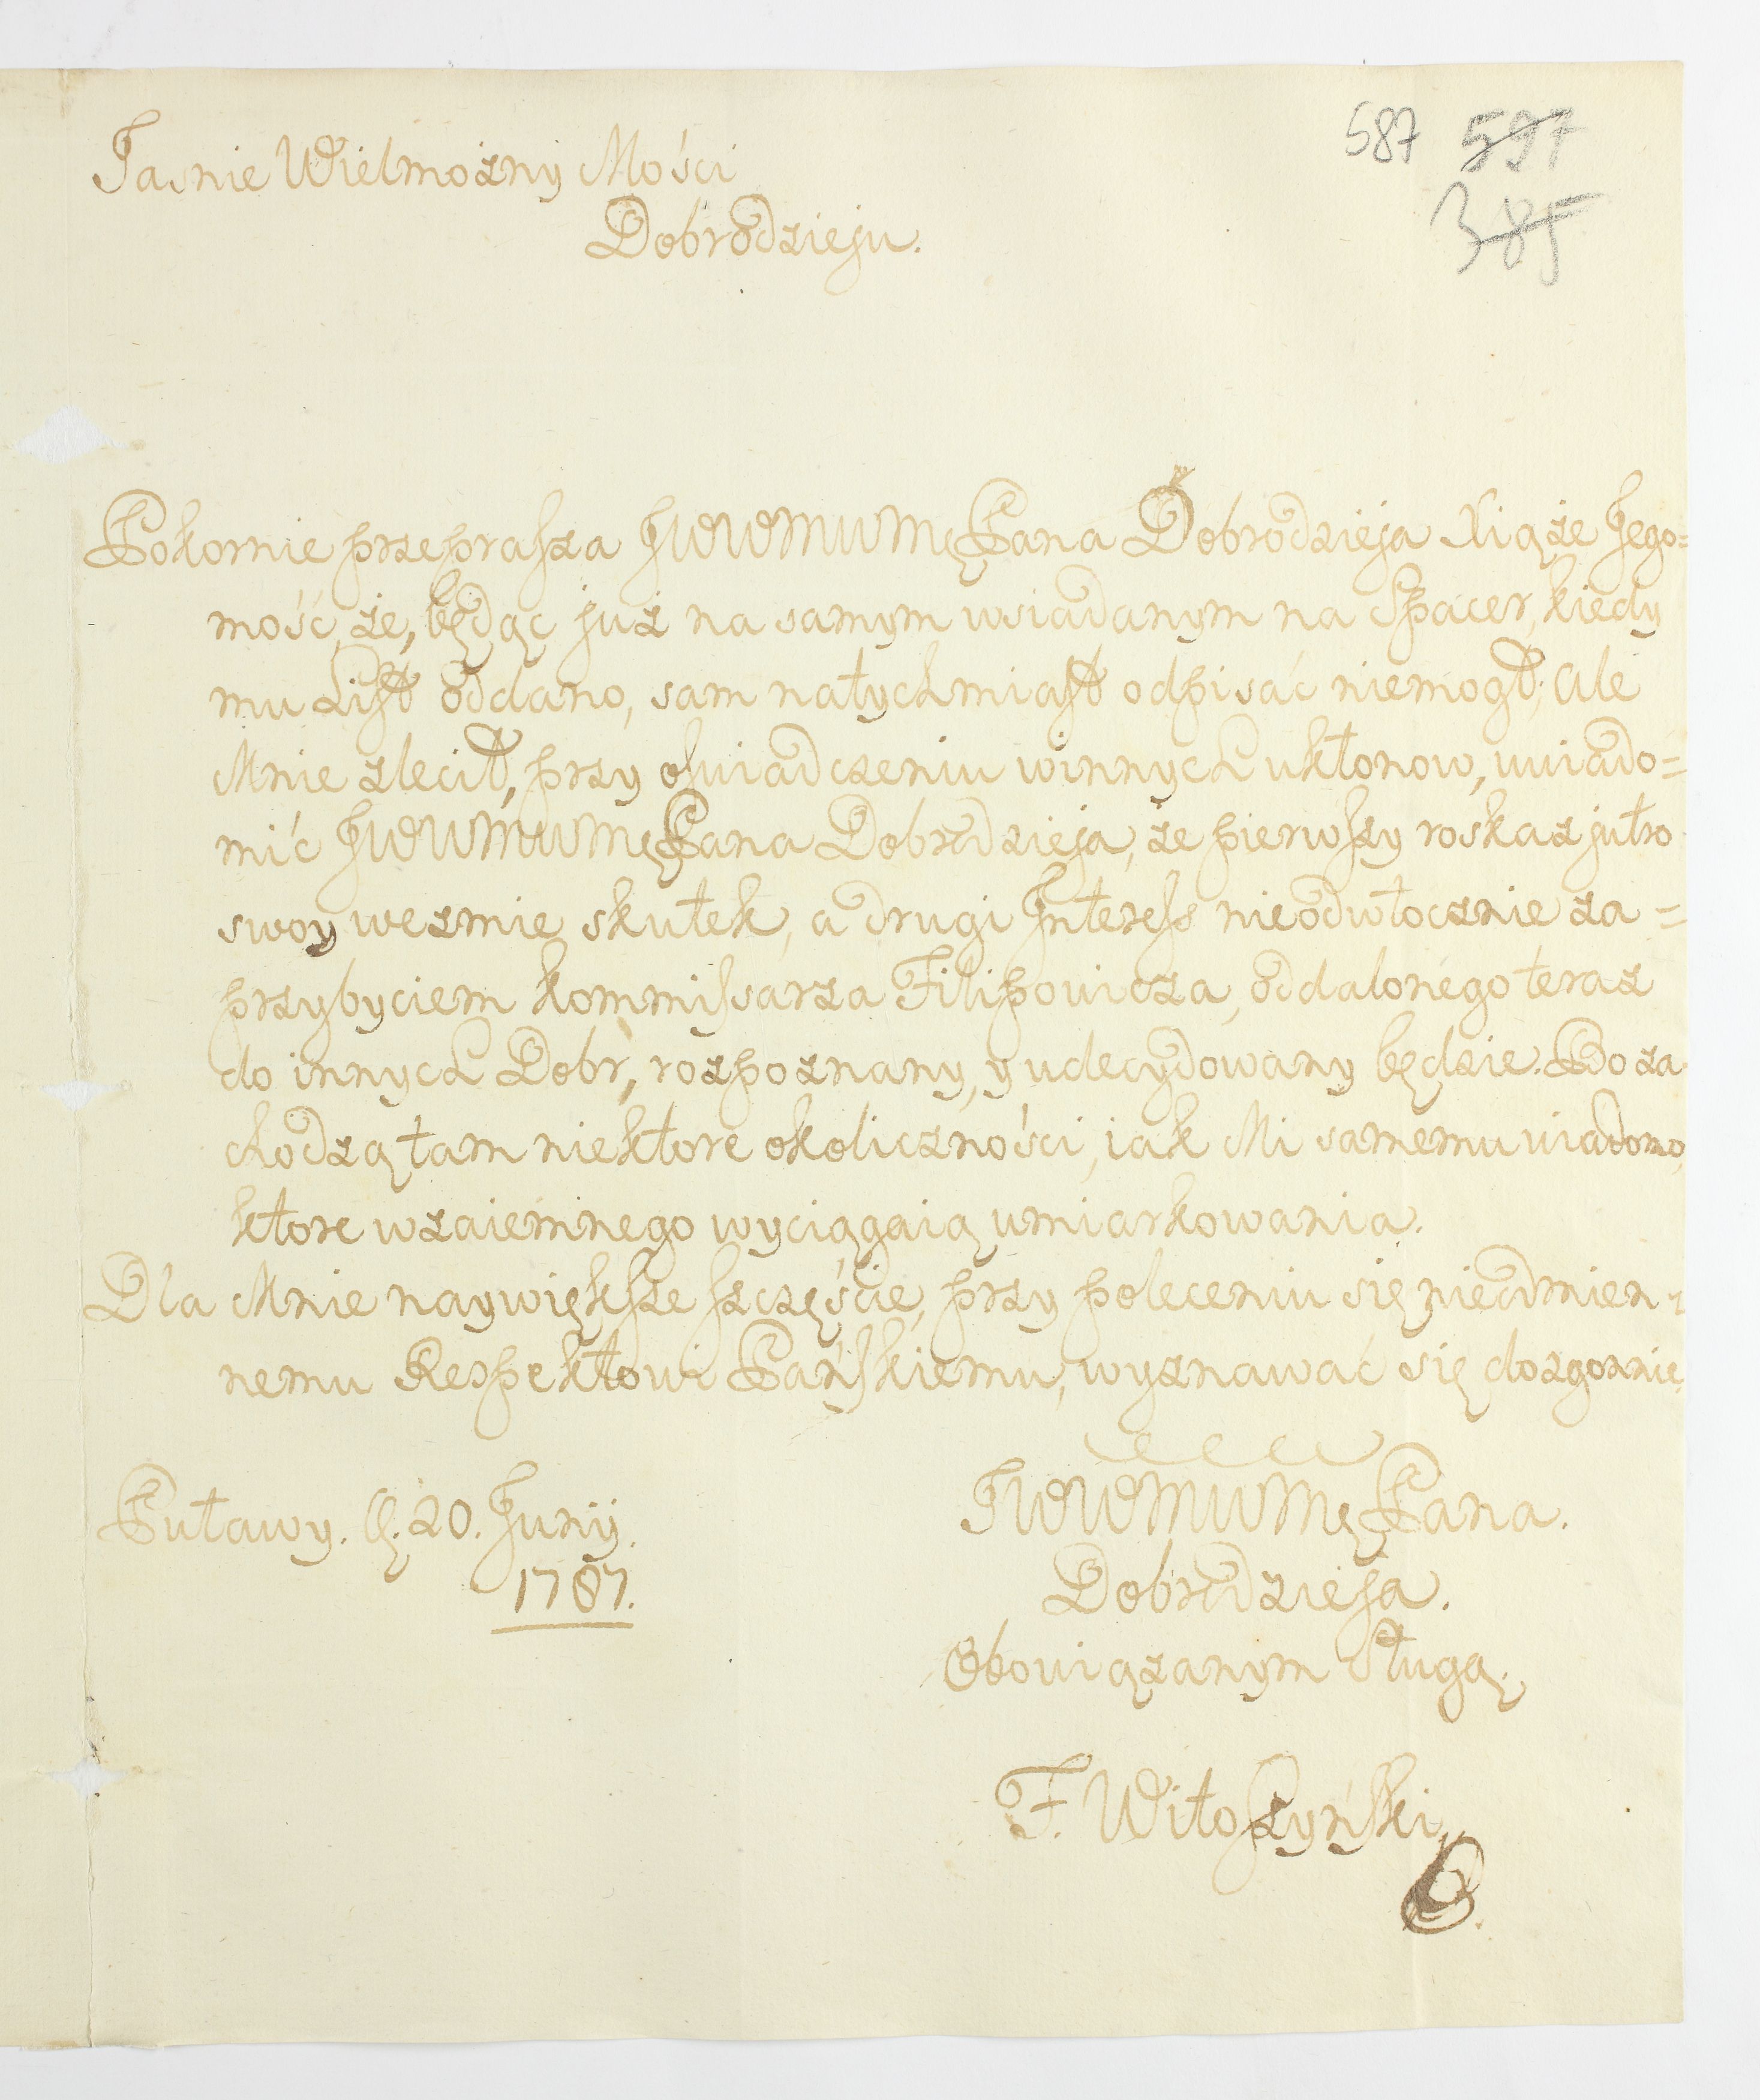 587 597
385
Jasnie Wielmożny Mości
Dobrodzieju.
Pokornie przeprasza JWWMWMę Pana Dobrodzieja Xiąże Jego=
mość, że, będąc już na samym wsiadanym na Spacer, kiedy
mu List oddano, sam natychmiast odpisać niemogł; ale
Mnie zlecił, przy oswiadczeniu winnych ukłonow, uwiado=
mić JWWMWMę Pana Dobrodzieja, że pierwszy roskaz jutro
swoy wezmie skutek, a drugi Interess nieodwłocznie za=
przybyciem kommissarza Filipowicza, oddalonego teraz
do innych Dobr, rozpoznany, y udecydowany będzie. Bo za-
chodzą tam niektore okoliczności, iak Mi samemu wiadomo,
ktore wzaiemnego wyciągaią umiarkowania.
Dla Mnie naywiększe szczęście, przy poleceniu się nieodmien-
nemu Respektowi Pańskiemu, wyznawać się dozgonnie,
JWWMWMę Pana.
Dobrodzieja.
Obowiązanym Sługą.
Puławy. d. 20. Junij.
1787.
F. Witoszyński